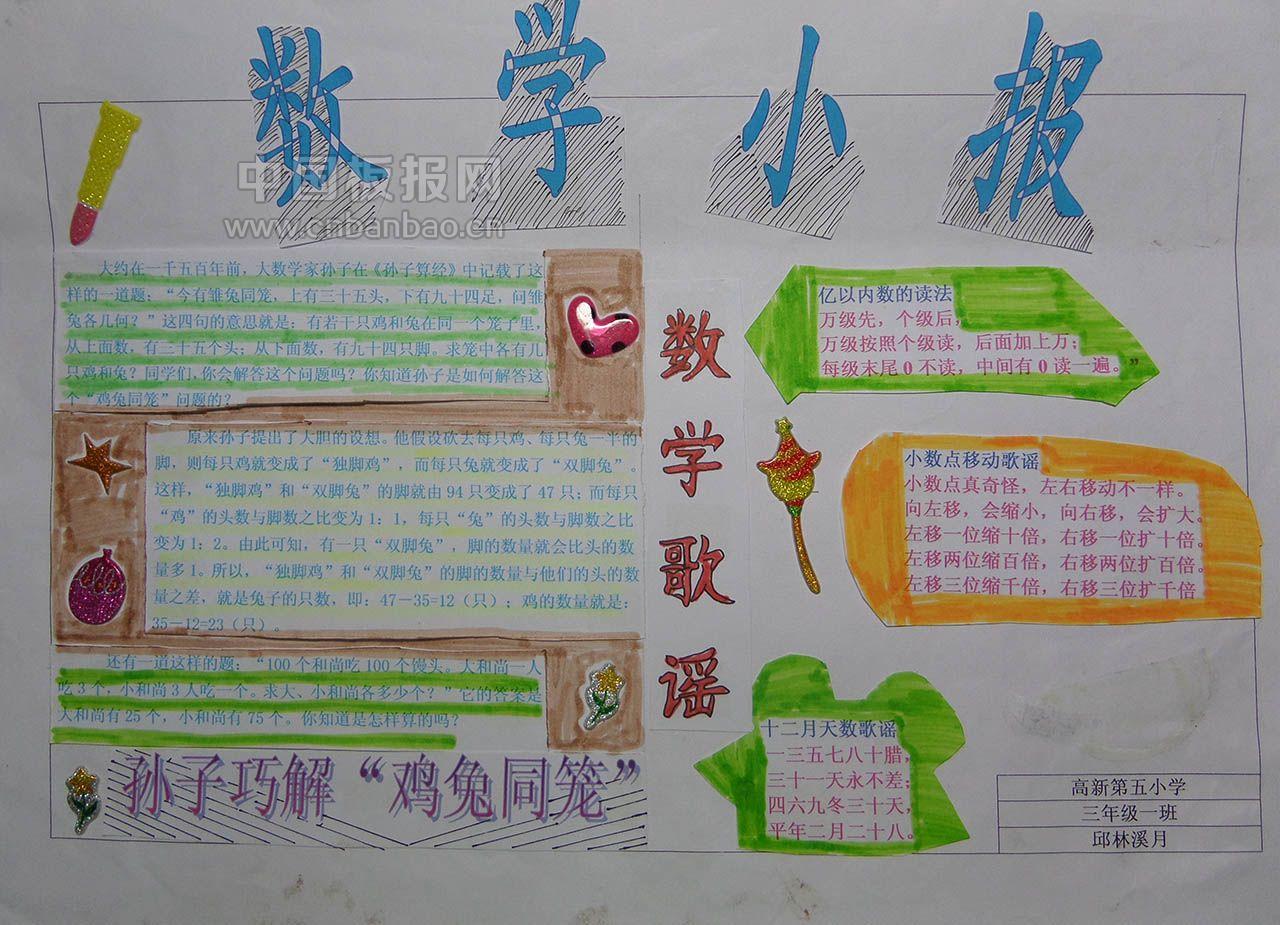 数学小报
中国板报网
www.cnbanbao.cn
大约在一千五百年前，大数学家孙子在《孙子算经》中记载了这
样的一道题：“今有雏兔同笼，上有三十五头，下有九十四足，问雏
兔各几何？”这四句的意思就是：有若干只鸡和兔在同一个笼子里，
从上面数，有三十五个头；从下面数，有九十四只脚。求笼中各有几
只鸡和兔？同学们，你会解答这个问题吗？你知道孙子是如何解答这
个“鸡兔同笼”问题的？
原来孙子提出了大胆的设想。他假设砍去每只鸡、每只兔一半的
脚，则每只鸡就变成了“独脚鸡”，而每只兔就变成了“双脚兔”。
这样，“独脚鸡”和“双脚兔”的脚就由94只变成了47只；而每只
“鸡”的头数与脚数之比变为1：1，每只“兔”的头数与脚数之比
变为1：2。由此可知，有一只“双脚兔”，脚的数量就会比头的数
量多1。所以，“独脚鸡”和“双脚兔”的脚的数量与他们的头的数
量之差，就是兔子的只数，即：47－35=12（只）；鸡的数量就是：
35－12=23（只）。
还有一道这样的题：“100个和尚吃100个馒头。大和尚一人
吃3个，小和尚3人吃一个。求大、小和尚各多少个？”它的答案是
大和尚有25个，小和尚有75个。你知道是怎样算的吗？
孙子巧解“鸡兔同笼”
数学歌谣
亿以内数的读法
万级先，个级后，
万级按照个级读，后面加上万；
每级末尾0不读，中间有0读一遍。”
小数点移动歌谣
小数点真奇怪，左右移动不一样。
向左移，会缩小，向右移，会扩大。
左移一位缩十倍，右移一位扩十倍。
左移两位缩百倍，右移两位扩百倍。
左移三位缩千倍，右移三位扩千倍
十二月天数歌谣
一三五七八十腊，
三十一天永不差；
四六九冬三十天，
平年二月二十八。
高新第五小学
三年级一班
邱林溪月